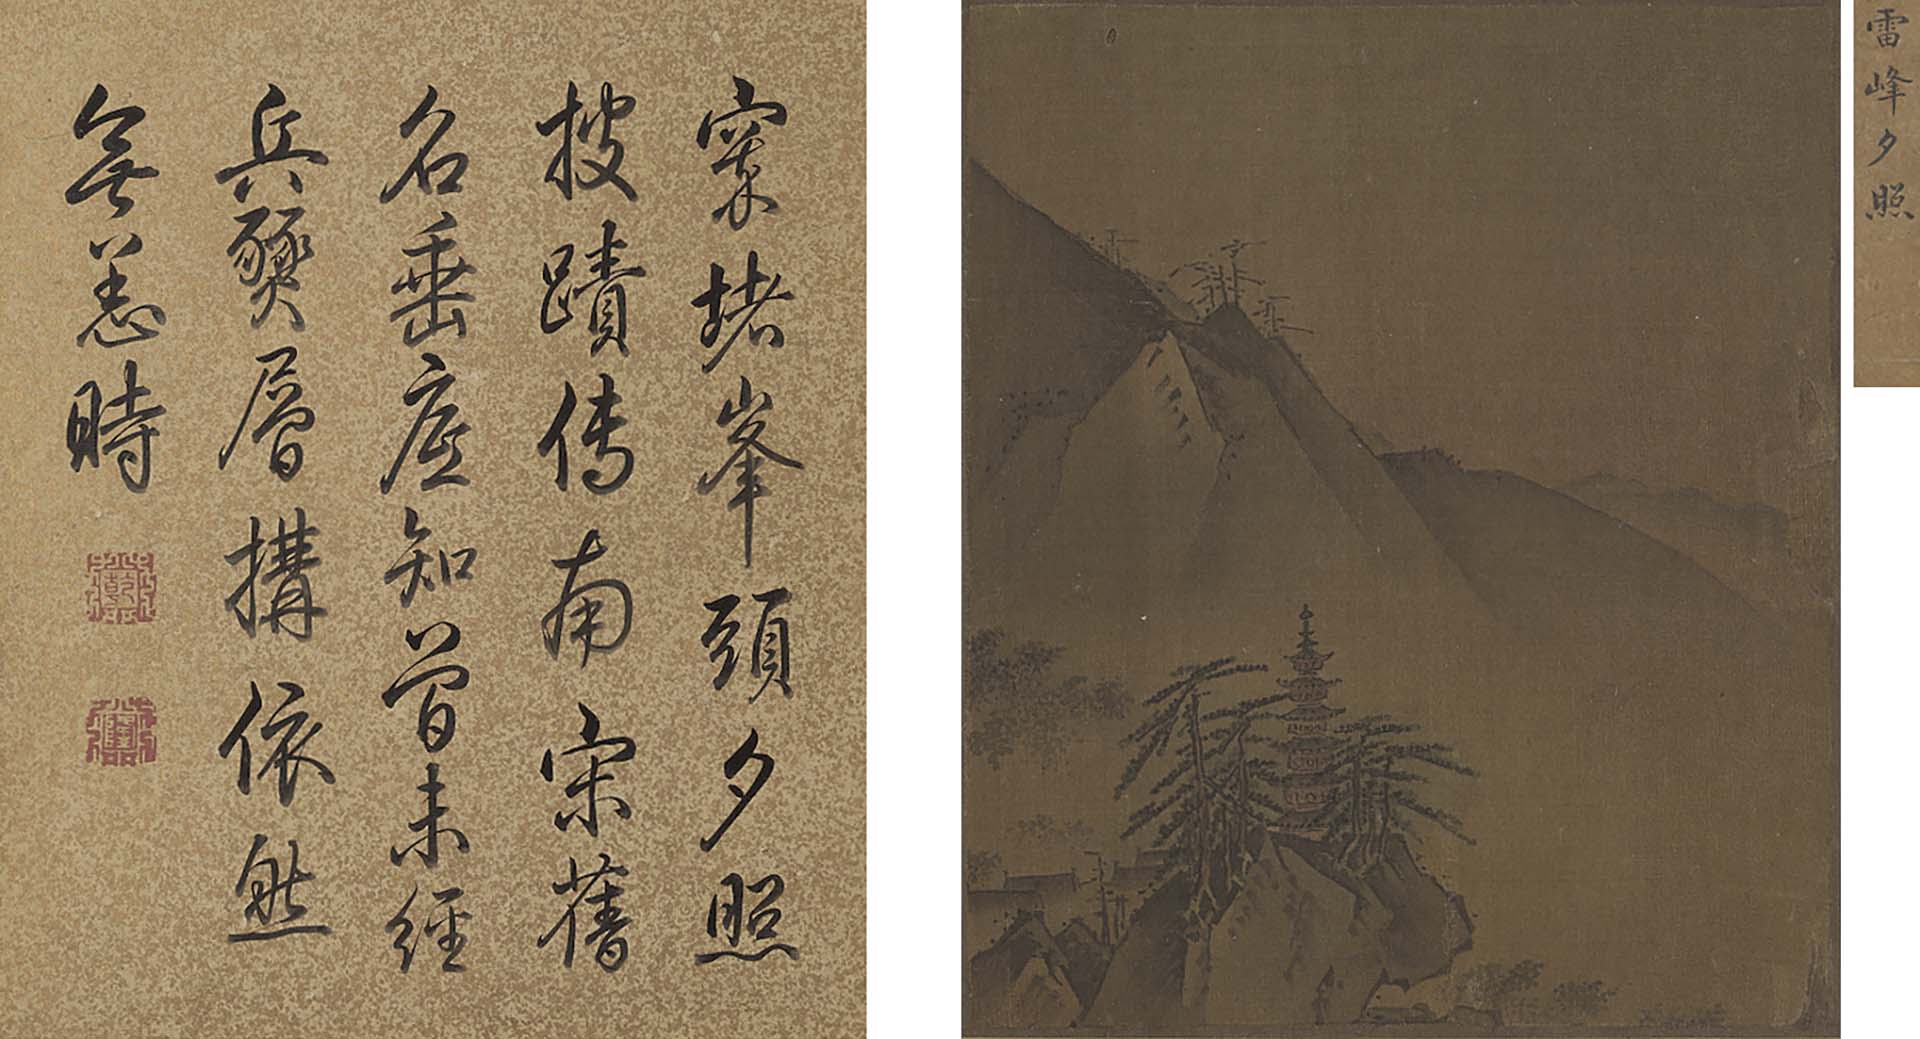 雷峰夕照
窣堵峯頭夕照
披蹟傳南宋舊
名垂應知曾未經
兵燹層構依然
無恙時